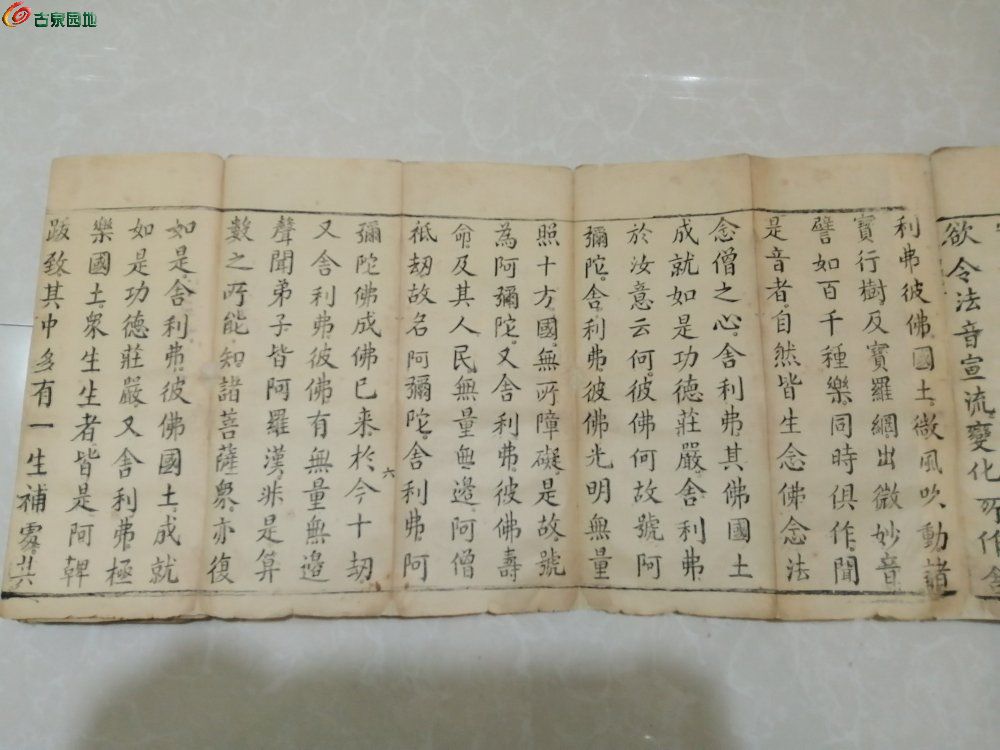 古泉园地
欲令法音宣流變化所作舍
利弗彼佛國土微風吹動諸
寶行樹及寶羅網出微妙音
譬如百千種樂同時俱作聞
是音者自然皆生念佛念法
念僧之心舍利弗其佛國土
成就如是功德莊嚴舍利弗
於汝意云何彼佛何故號阿
彌陀舍利弗彼佛光明無量
照十方國無所障礙是故號
為阿彌陀又舍利弗彼佛壽
命及其人民無量無邊阿僧
祇劫故名阿彌陀舍利弗阿
六
彌陀佛成佛已来於今十劫
又舍利弗彼佛有無量無邉
聲聞弟子皆阿羅漢非是算
數之所能知諸菩薩衆亦復
如是舍利弗彼佛國土成就
如是功德莊嚴又舍利弗極
樂國土衆生生者皆是阿鞞
跋致其中多有一生補處其